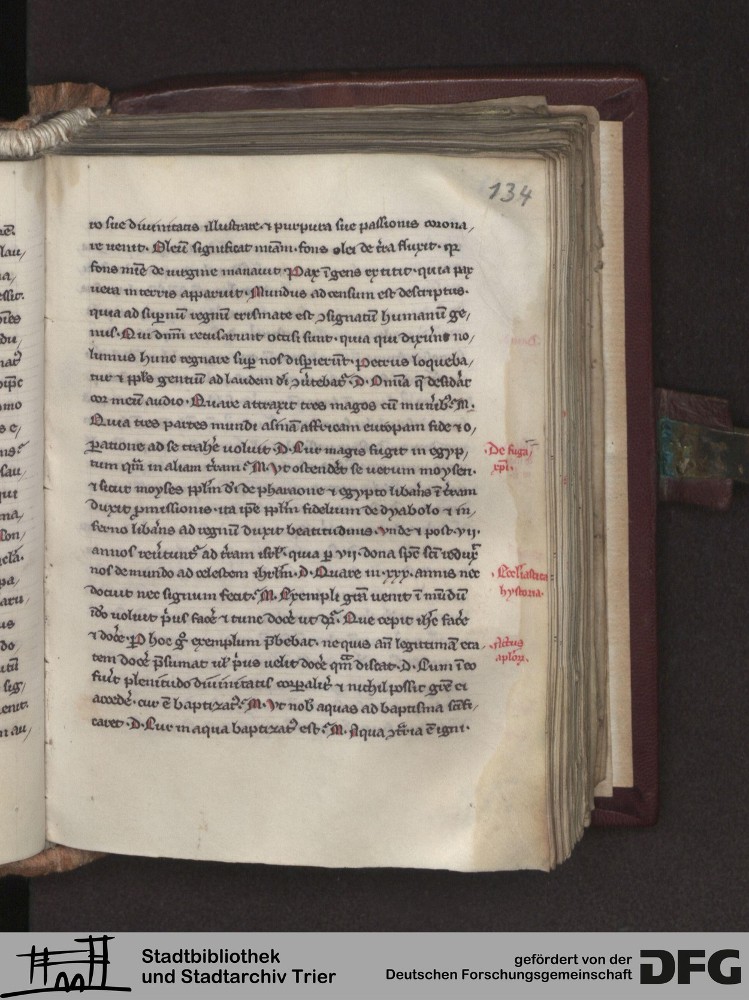 134
ro sue diuinitatis illustrare ⁊ purpura sue passionis corona/
re uenit. Oleū significat miam̄. fons olei de tr̄a fluxit. qr
fons mīe de uirgine manauit. Pax īgens extitit. quia pax
uera in terris apparuit. Mundus ad censum est descriptus.
quia ad supnū regnū crismate est ꝯsignatū humanū ge/
nus. Qui dnm̄ recusarunt occisi sunt. quia qui dixer̄t no/
lumus hunc regnare sup nos disperierūt. Petrus loqueba/
tur ⁊ ppl̄s gentiū ad laudem di ꝯuertebat᷑. D. Omīa q̄ desid̄at
cor meū audio. Quare attraxit tres magos cū munib᷑. M.
Quia tres partes mundi asiam affricam europam fide ⁊ o/
ꝑatione ad se trah̄e uoluit. D. Cur magis fugit in egyp/
tum qm̄ in aliam tr̄am. M. Vt ostender̄t se uerum moysen.
⁊ sicut moyses pplm̄ di de pharaone ⁊ egypto libans ī tr̄am
duxit ꝓmissionis. ita ipe pplm̄ fidelium de dyabolo ⁊ in/
ferno libans ad regnū duxit beatitudinis. Vnde ⁊ post .vii.
annos reūtunt᷑ ad tr̄am isrl̄. quia ꝑ vii. dona sp̄c sc̄i redux̄
nos de mundo ad celestem ihrlm̄. D. Quare in .xxx. annis nec
docuit nec signum fecit. M. Exempli grā uenit ī mūdū
ido uoluit pus fac̄e ⁊ tunc doc̄e ut dr̄. Que cepit ihc̄ fac̄e
⁊ doc̄e. Ꝑ hoc g̊ exemplum p̄bebat. ne quis an̄ legittimā eta/
tem doc̄e p̄sumat ul pus uelit doc̄e qm̄ discat. D. Cum ī eo
fuit plenitudo diuinitatis corꝑalit᷑ ⁊ nichil possit gr̄e ei
acced̄e. cur ē baptizat᷑. M. Vt nob aquas ad baptisma scīfi/
caret. D. Cur in aqua baptizat᷑ est. M. Aqua ꝯt̄ria ē igni.
De fuga
xp̄i.
Eccl̄iastica
hystoria.
Actus
aploꝝ.
Stadtbibliothek
und Stadtarchiv Trier
gefördert von der
Deutschen Forschungsgemeinschaft
DFG